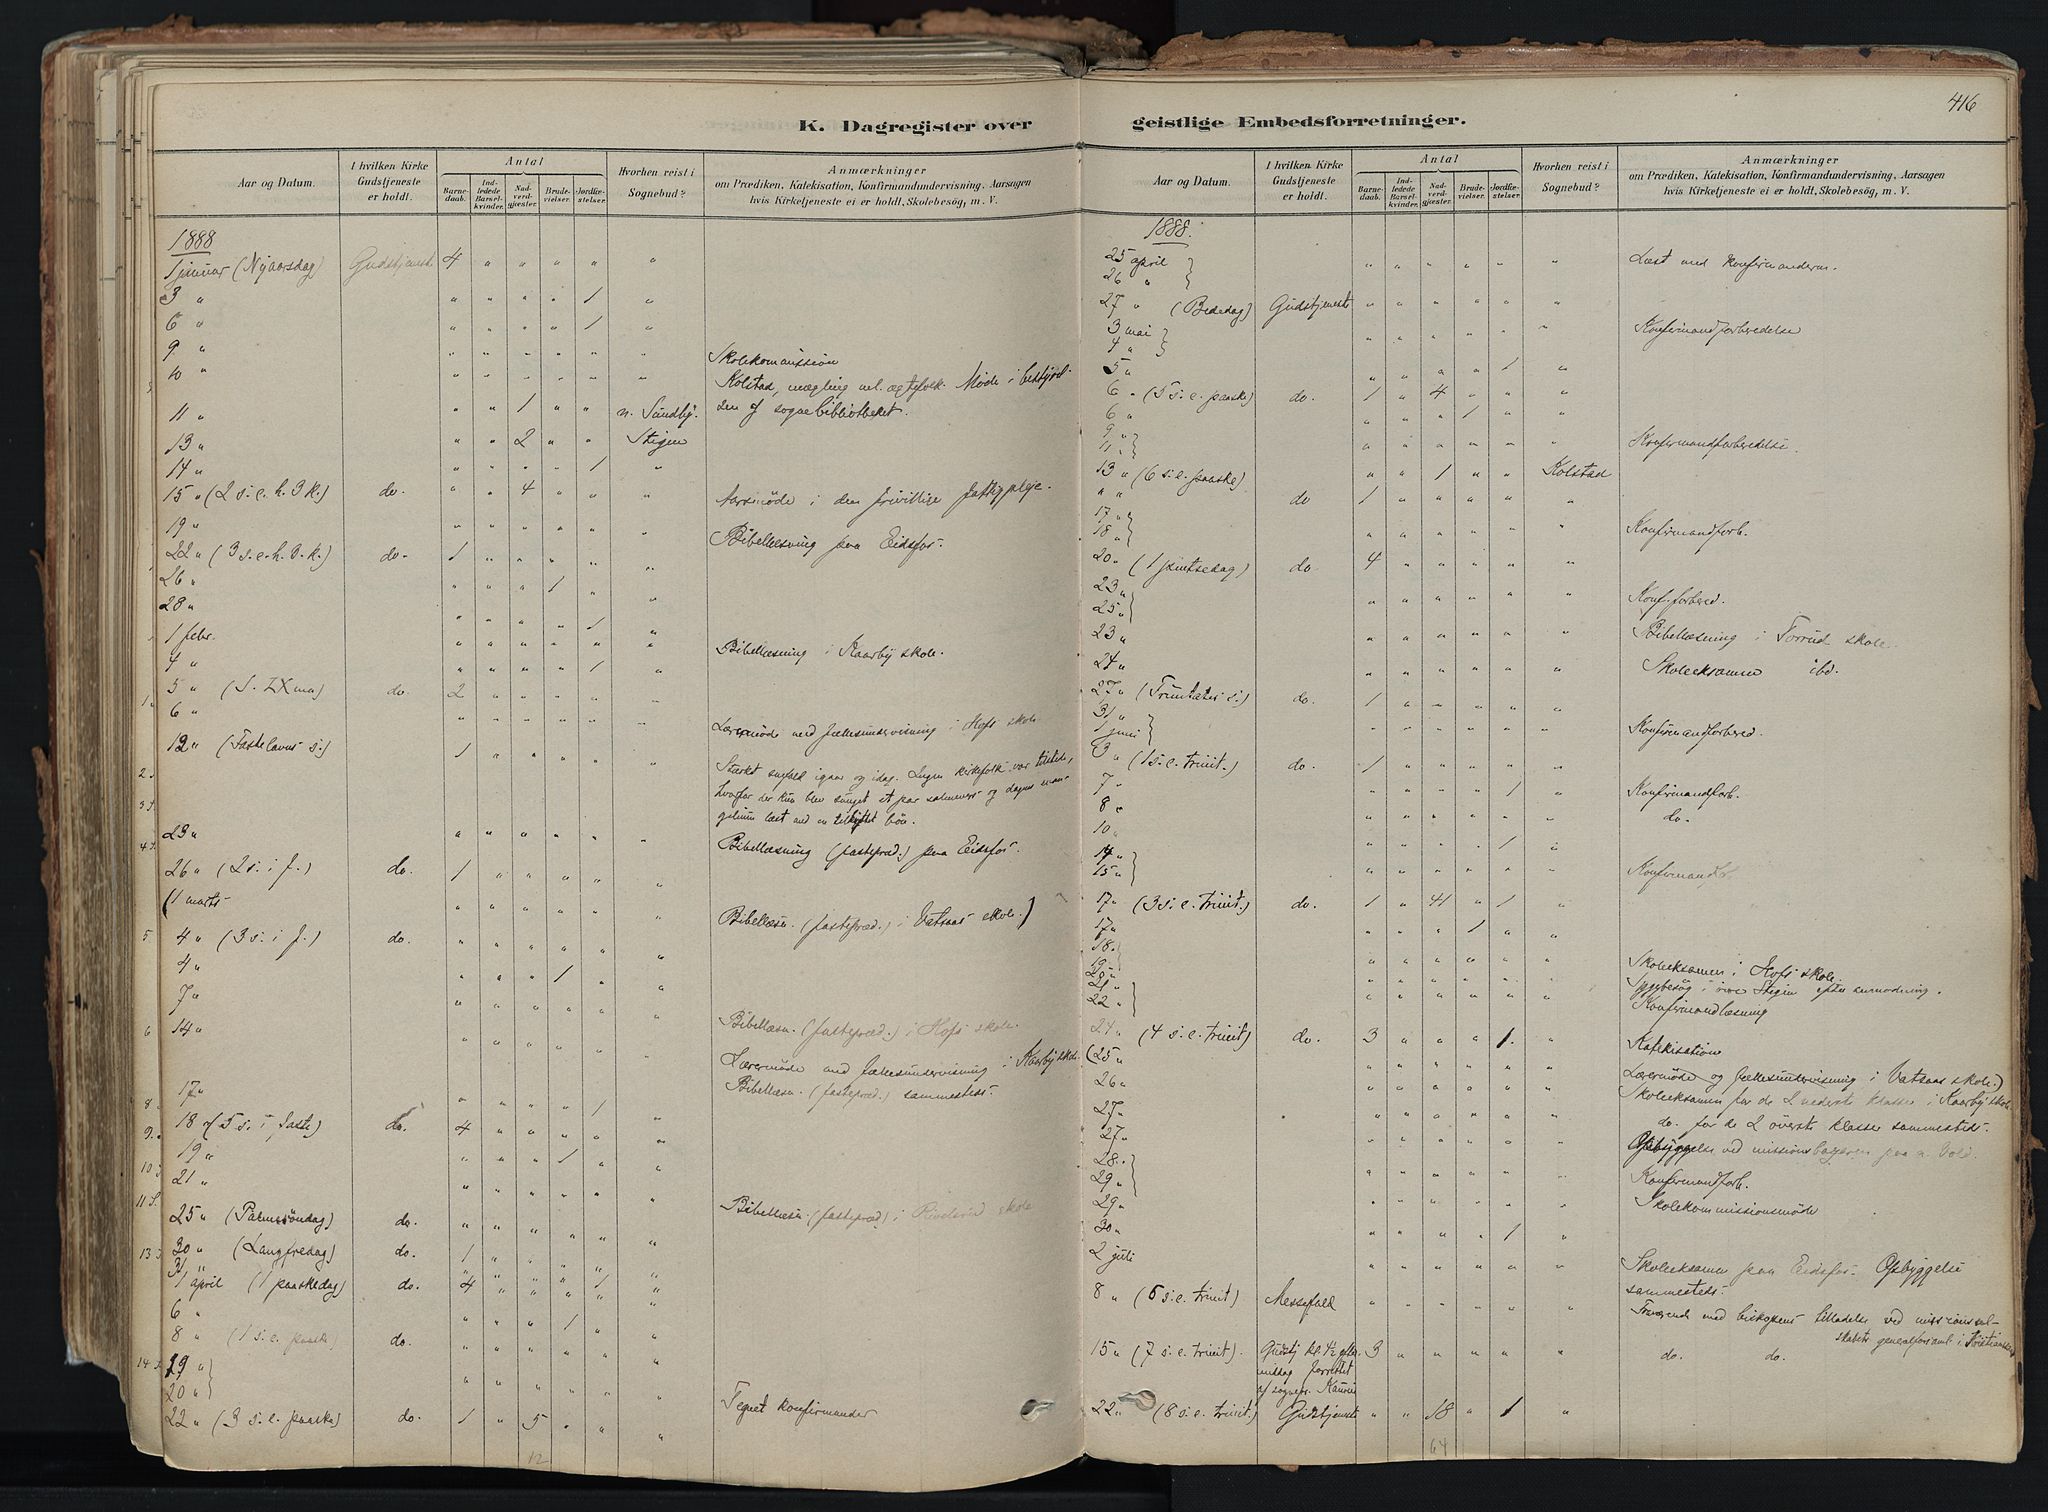 K. Dagregister over
Aar og Datum.
I hvilken Kirke Gudstjeneste er holdt.
Antal
Barne-daab.
Ind-ledede Barsel-kvinder.
Nad-verd-gjæster.
Brude-vielser.
Jordfæ-stelser.
Hvorhen reist i Sognebud?
Anmærkninger
om Prædiken, Katekisation, Konfirmandundervisning, Aarsagen
hvis Kirketjeneste ei er holdt, Skolebesøg, m. V.
1888
1 januar (Nyaarsdag) Gudstjenest 4 " " " " "
3 " " " " " 1 "
6 " " " " " 1 "
9 " " " " " " " Skolekomission
10 " " " " " " " Kolstad, mægling ml. ægtefolk. Møde i bestyrel-
11 " " " 1 " " n. Sundby. sen af sognebibliotheket.
13 " " " 2 " " Stigen
14 " " " " " 1 "
15 " (2 s. e. h. 3 k.) do. " " 4 " " " Aarsmøde i den frivillige fattigpleje.
19 " " " " " " " Bibellæsning paa Eidsfos.
22 " (3 s. e. h. 3. k.) do. 1 " " " " "
26 " " " " 1 " "
28 " " " " " 1 "
1 febr. " " " " " " Bibellæsning i Kaarby skole.
4 " " " " " 1 "
5 " (S. LXma) do. 2 " " " " "
6 " " " " " " " Lærermøde med fællesundervisning i Hofs skole
12 " (Fastelavns s.) 1 " " " " " Stærkt snefald igaar og idag. Ingen kirkefolk var tilstede,
hvorfor der kun blev sunget et par salmevers og dagens evan-
gelium læst med en tilknyttet bøn.
23 " " " " " " " Bibellæsning (fastepræd.) paa Eidsfos.
26 " (2 s. i f.) do. 1 " " " " "
(1 marts " " " " " " Bibellæsn. (fastepræd.) i Vatsaas skole.)
4 " (3 s. i f.) do. " " " " " "
4 " " " " 1 " "
7 " " " " " " " Bibellæsn. (fastepræd.) i Hofs skole.
14 " " " " " " " Lærermøde med fællesundervisning i Kaarby skole
Bibellæsn. (fastepræd.) sammesteds.
17 " " " " " 1 "
18 " (5 s. i faste) do. 4 " " " " "
19 " " " " 1 " "
21 " " " " " " " Bibellæsn. (fastepræd.) i skole
25 " (Palmesöndag) do. " " " " " "
30 " (Langfredag) do. 1 " " " " "
31 " " " " " " "
1 april (1 paaskedag) do. 4 " " " 1 "
6 " " " " 1 " "
8 " (1 s. e. paaske) do. " " " " " "
19 " }
20 " } " " " " " " Tegnet konfirmander
22 " (3 s. e. paaske) do. 1 " 5 " " "
12
geistlige Embedsforretninger.
416
Aar og Datum.
I hvilken Kirke Gudstjeneste er holdt.
Antal
Barne-daab.
Ind-ledede Barsel-kvinder.
Nad-verd-gjæster.
Brude-vielser.
Jordfæ-stelser.
Hvorhen reist i Sognebud?
Anmærkninger
om Prædiken, Katekisation, Konfirmandundervisning, Aarsagen
hvis Kirketjeneste ei er holdt, Skolebesøg, m. V.
1888.
25 april }
26 " } " " " " " " Læst med konfirmanderne.
27 " (Bededag) Gudstjeneste " " " " " "
3 mai }
4 " } " " " " " " Konfirmandforberedelse
5 " " " " " 1 "
6 " (5 s. e. paaske) do. 1 " 4 " " "
6 " " " " 1 " "
9 " }
11 " } " " " " " " Konfirmandforberedelse.
13 " (6 s. e. paaske) " " 1 " " Kolstad
" " do 1 " " " " "
17 " }
18 " } " " " " " " Konfirmandforb.
20 " (1 pintsedag) do 4 " " " " "
23 " }
25 " } " " " " " " Konf. forbered.
23 " " " " " " " Bibellæsning i Torrud skole.
24 " " " " " " " Skoleeksamen ibd.
27 " (Trinitatis s.) do. 1 " " " " "
31 " }
1 juni } " " " " " " Konfirmandforbered.
3 " (1 s. e. trinit.) do. 1 " " " " "
7 " " " " " 1 " Konfirmandforb.
8 " " " " " " " do.
10 " " " " " 1 "
14 " }
15 " } " " " " " " Konfirmandfb.
17 " (3 s. e. trinit.) do. 1 " 41 " 1 "
17 " " " " 1 " "
18 " }
19 " } " " " " " " Skoleeksamen i Hofs skole.
20 " " " " " " " Sygebesøg i Stigen efter anmodning.
21 " }
22 " } " " " " " " Konfirmandlæsning
24 " (4 s. e. trinit) do. 3 " " " 1. " Katekisation
(25 " " " " " " " Lærermøde og fællesundervisning i Vatsaas skole.)
26 " " " " " " " Skoleeksamen for de 2 nederste klasser i Kaarby skole
27 " " " " " " " do. for de 2 øverste klasser sammesteds.
27 " " " " " " " Opbyggelse ved missions paa n. Vold.
28 " }
29 " } " " " " " " Konfirmandforb.
29 " " " " " " " Skolekommissionsmøde
30 " " " " " 1 "
2 juli " " " " " " Skoleeksamen paa Eidsfos. Opbyggelse
sammesteds.
8 " (6 s. e. trinit) Messefald " " " " " " Fraværende med biskopens tilladelse ved missionssel-
skabets generalforsaml. i Kristianssand
15 " (7 s. e. trinit). Gudstj kl. 4½ efter- 3 " " " " " do. do.
middag forrettet
af sognepr. Kaurin
22 " (8 s. e. trinit.) Gudstjeneste " " 18 " 1 "
64